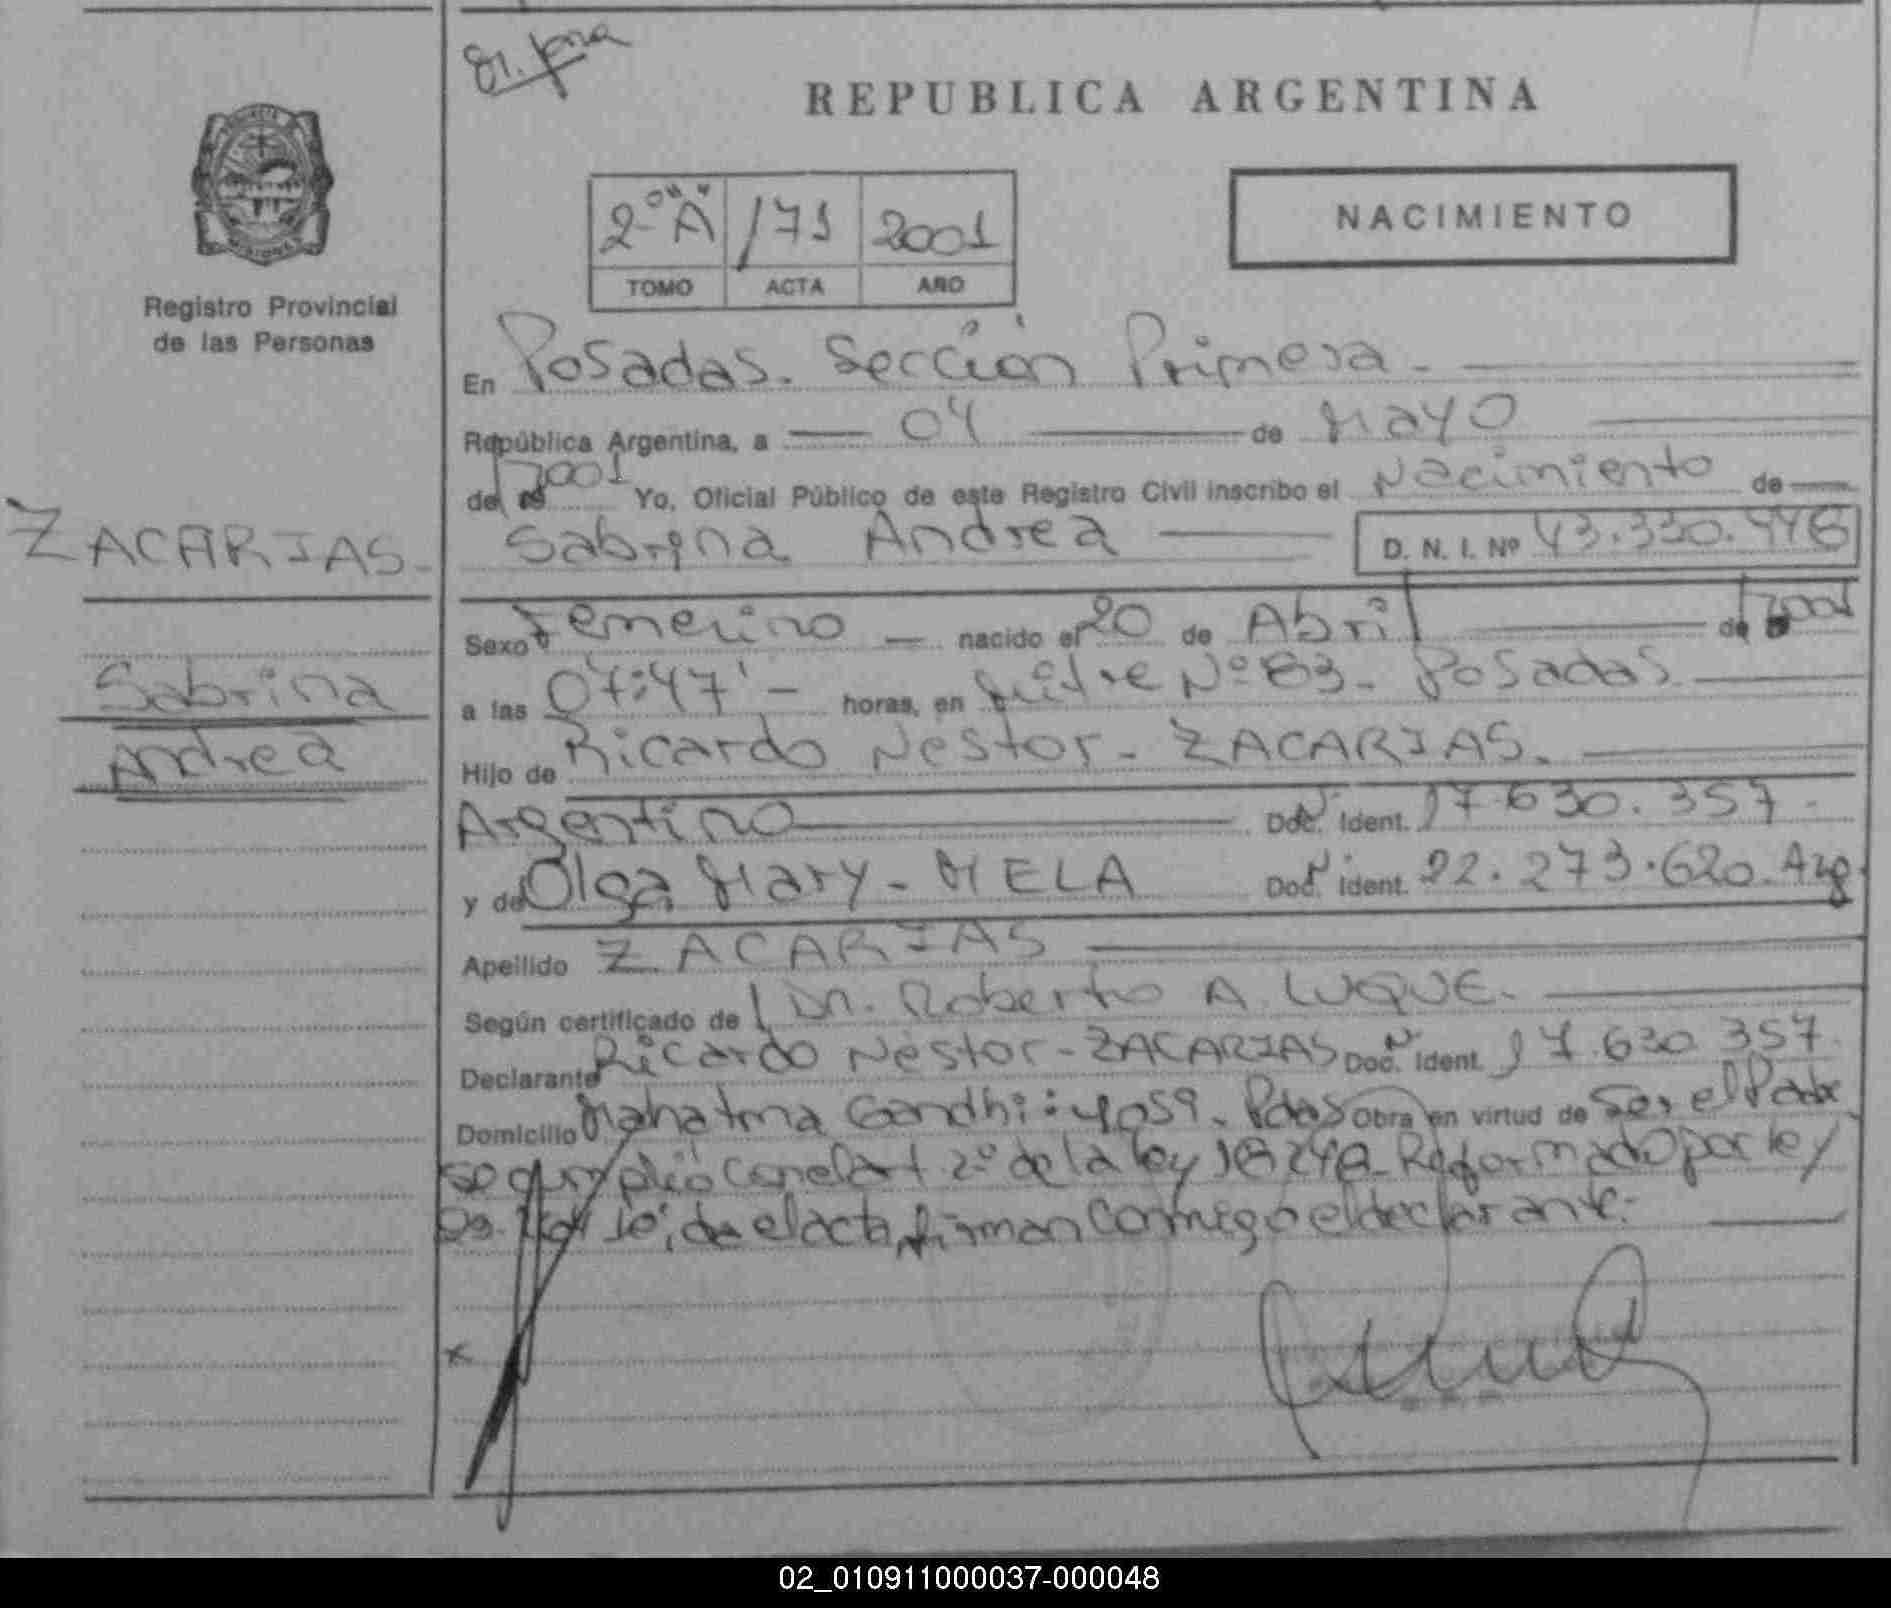 REPUBLICA ARGENTINA
2º "A" /71 2001
TOMO ACTA AÑO
NACIMIENTO
Registro Provincial
de las Personas
En Posadas. Sección Primera.
República Argentina, a 04 de Mayo
de 2001 Yo, Oficial Público de este Registro Civil inscribo el Nacimiento de
ZACARIAS
Sabrina Andrea D. N. I. Nº 43.330.446
Sexo Femenino nacido el 20 de Abril de 2001
Sabrina
a las 07:47' horas, en Mitre Nº 83. Posadas
Andrea
Hijo de Ricardo Nestor - ZACARIAS.
Argentino Doc. Ident. 17.630.357.
y de Olga Mary - MELA Doc. Ident. 22.273.620. Arg.
Apellido ZACARIAS
Según certificado de Dr. Roberto A. LUQUE.
Declarante Ricardo Nestor - ZACARIAS Doc. Ident. 17.630.357.
Domicilio Mahatma Gandhi: 4059. Pdas Obra en virtud de Ser el Padre
se cumplió con el art 2º de la ley 18248 Reformado por ley
el acta, firman conmigo el declarante.
02_010911000037-000048